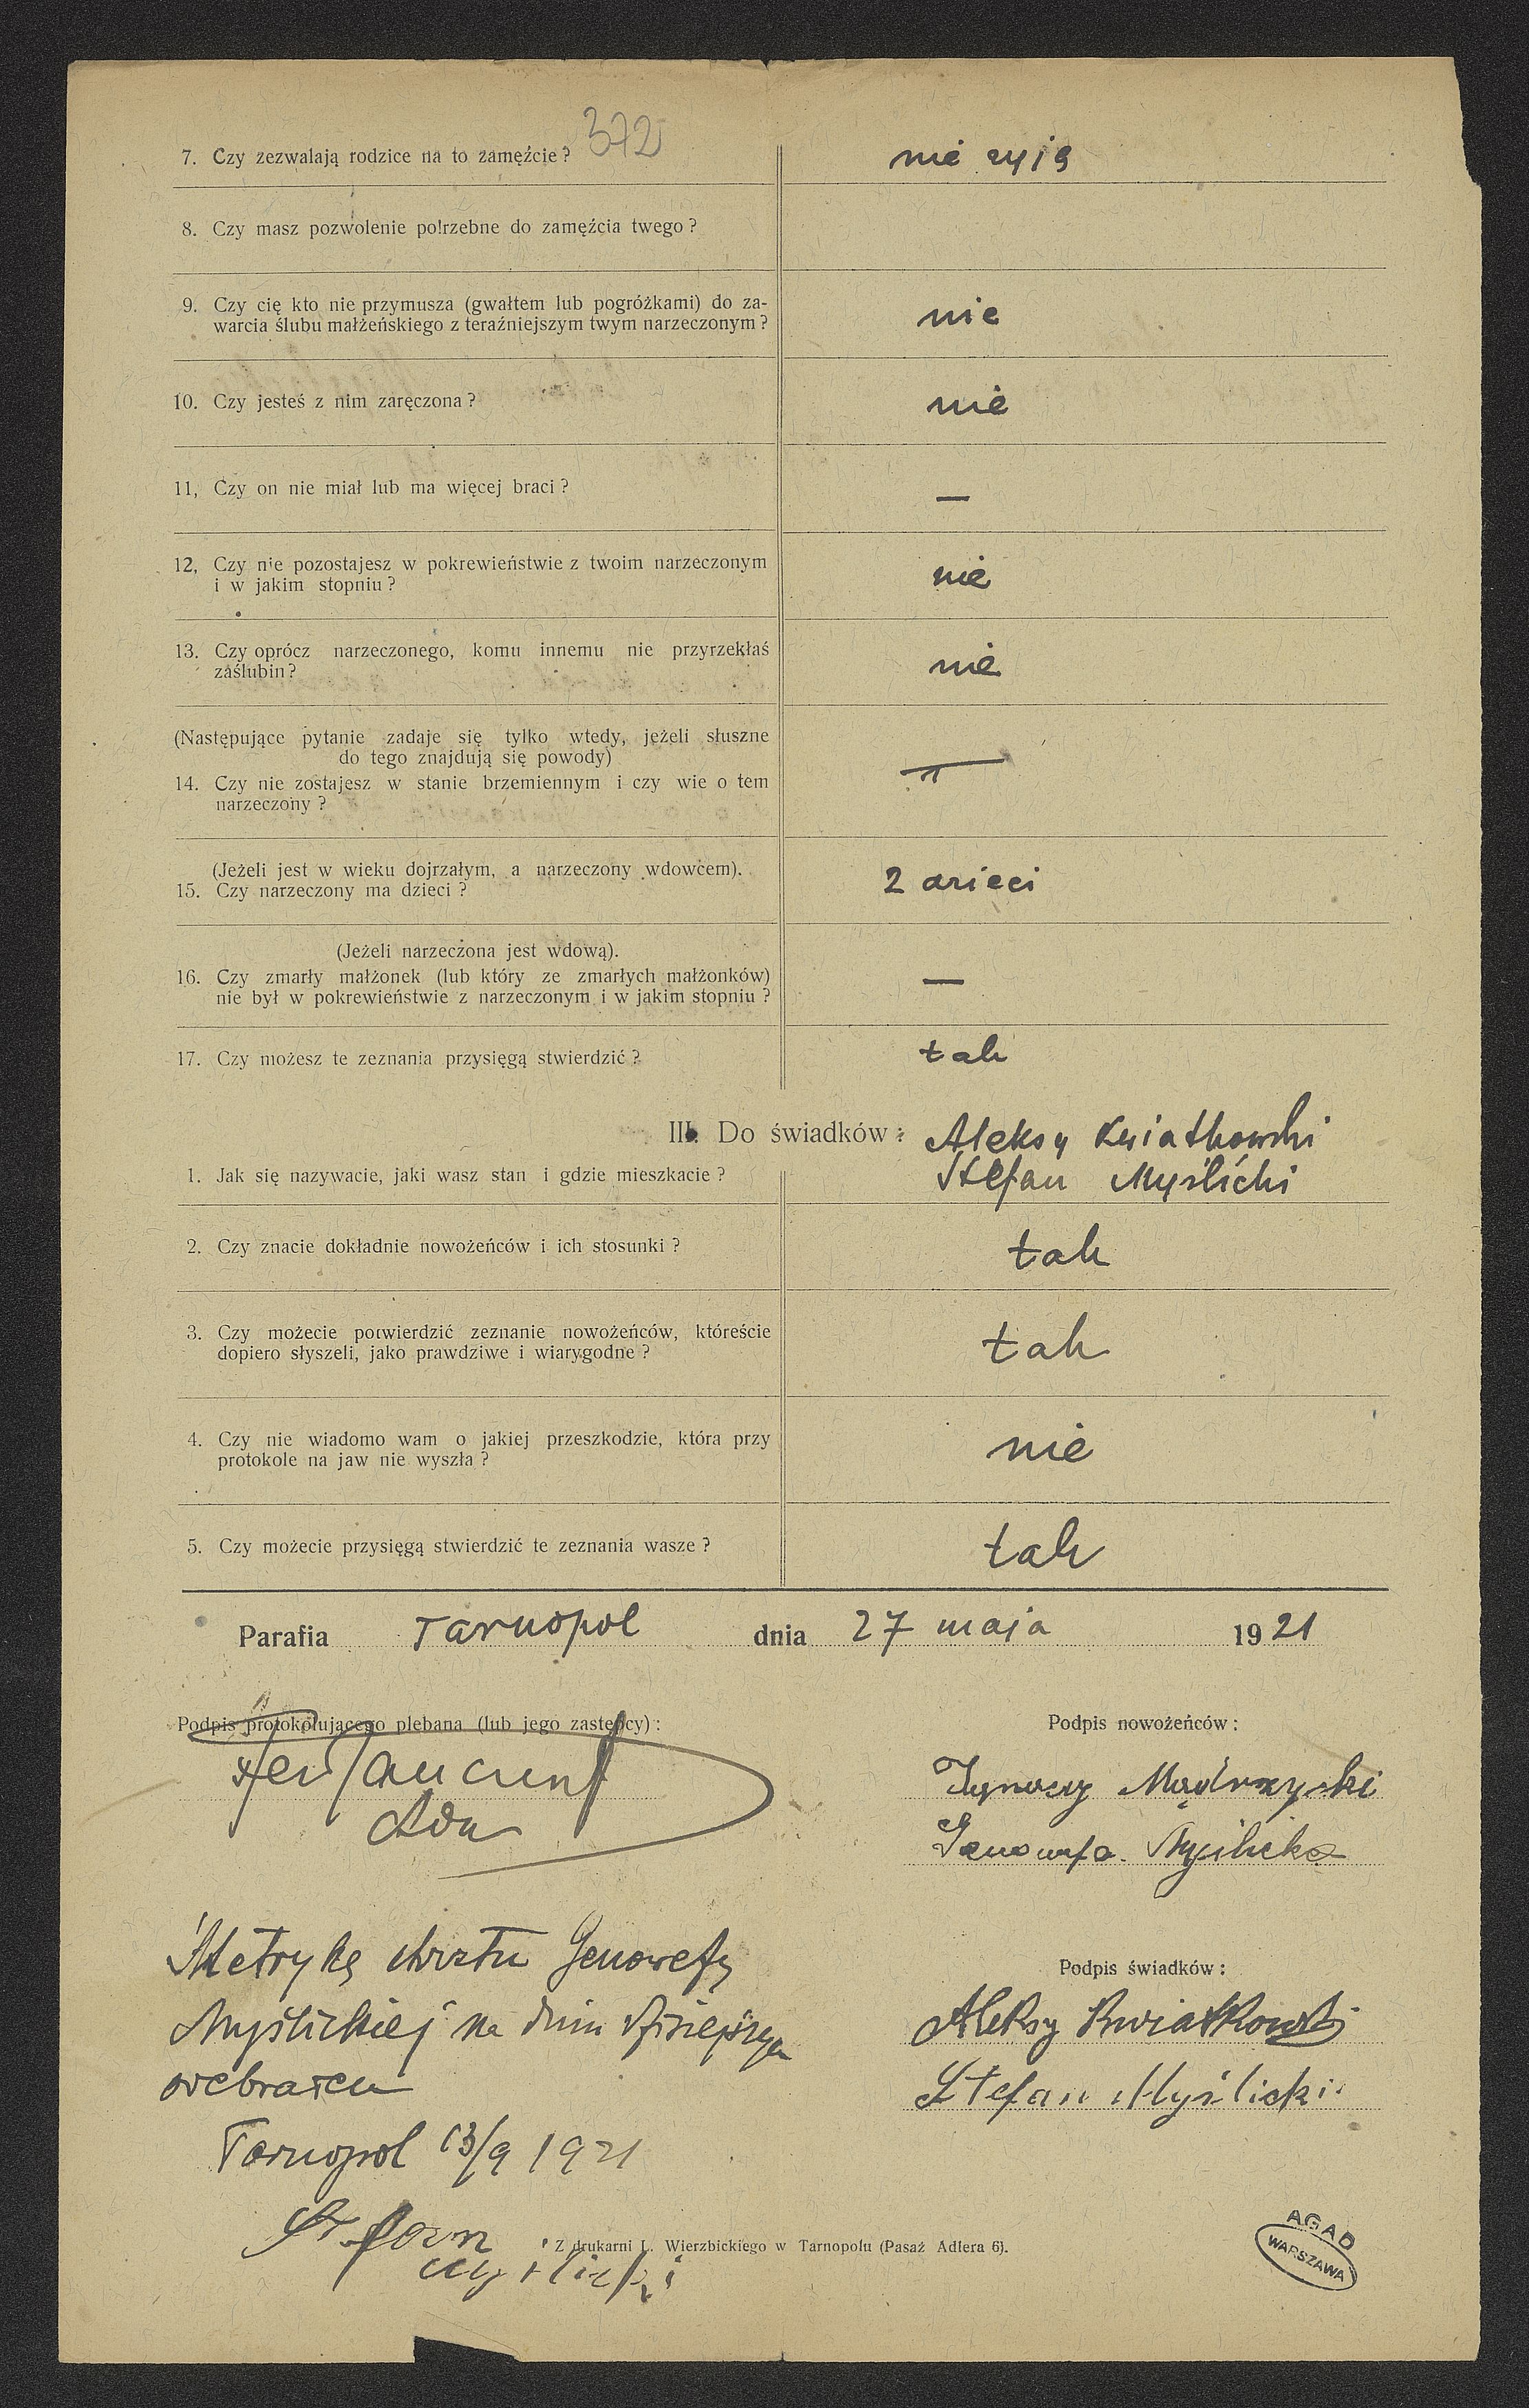 372
7. Czy zezwalają rodzice na to zamęźcie? nie żyją
8. Czy masz pozwolenie potrzebne do zamęźcia twego?
9. Czy cię kto nie przymusza (gwałtem lub pogróżkami) do za-
warcia ślubu małżeńskiego z teraźniejszym twym narzeczonym? nie
10. Czy jesteś z nim zaręczona? nie
11, Czy on nie miał lub ma więcej braci? —
12, Czy nie pozostajesz w pokrewieństwie z twoim narzeczonym
i w jakim stopniu? nie
13. Czy oprócz narzeczonego, komu innemu nie przyrzekłaś
zaślubin? nie
(Następujące pytanie zadaje się tylko wtedy, jeżeli słuszne
do tego znajdują się powody)
14. Czy nie zostajesz w stanie brzemiennym i czy wie o tem
narzeczony? —
(Jeżeli jest w wieku dojrzałym, a narzeczony wdowcem).
15. Czy narzeczony ma dzieci? 2 dzieci
(Jeżeli narzeczona jest wdową).
16. Czy zmarły małżonek (lub który ze zmarłych małżonków)
nie był w pokrewieństwie z narzeczonym i w jakim stopniu? —
17. Czy możesz te zeznania przysięgą stwierdzić? tak
III. Do świadków: Aleksy Kwiatkowski
1. Jak się nazywacie, jaki wasz stan i gdzie mieszkacie? Stefan Myślicki
2. Czy znacie dokładnie nowożeńców i ich stosunki? tak
3. Czy możecie potwierdzić zeznanie nowożeńców, któreście
dopiero słyszeli, jako prawdziwe i wiarygodne? tak
4. Czy nie wiadomo wam o jakiej przeszkodzie, która przy
protokole na jaw nie wyszła? nie
5. Czy możecie przysięgą stwierdzić te zeznania wasze? tak
Parafia Tarnopol dnia 27 maja 1921
Podpis protokołującego plebana (lub jego zastępcy):
Podpis nowożeńców:
Ignacy Mądrzycki
Genowefa Myślicka
Metrykę chrztu Genowefy
Myślickiej na dniu dzisiejszym
odebrałem
Tarnopol 13/9 1921
Stefan
Myślicki
Podpis świadków:
Aleksy Kwiatkowski
Stefan Myślicki
Z drukarni L. Wierzbickiego w Tarnopolu (Pasaż Adlera 6).
AGAD
WARSZAWA